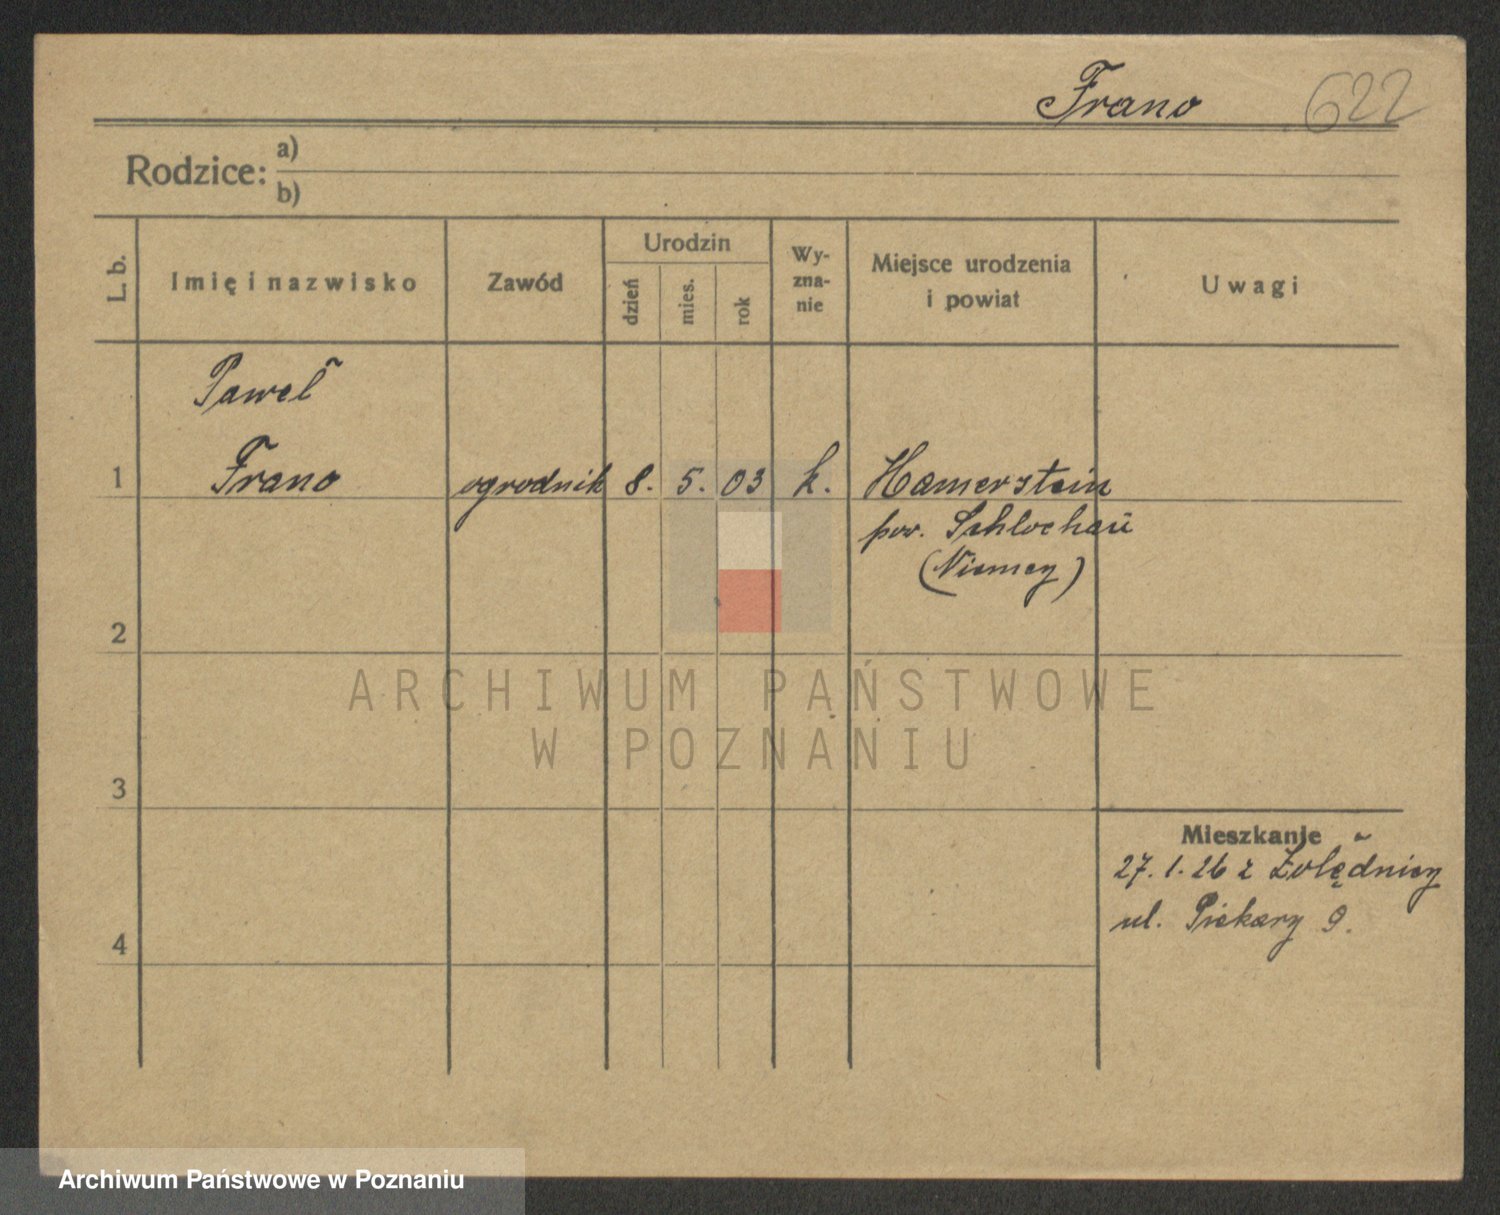 Frano 622
Rodzice: a)
b)
L. b.
Imię i nazwisko
Zawód
Urodzin
dzień
mies.
rok
Wy-
zna-
nie
Miejsce urodzenia
i powiat
Uwagi
Paweł
1 Frano ogrodnik 8. 5. 03 k. Hamerstein
pow. Schlochaŭ
(Niemcy)
2
ARCHIWUM PAŃSTWOWE
W POZNANIU
3
Mieszkanie
27. 1. 26 z Żołędnicy
ul. Piekary 9.
4
Archiwum Państwowe w Poznaniu